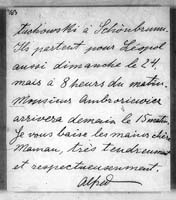 à Schönbrunn.
Ils partent pour Léopol
aussi dimanche le 24,
mais à 8 heurs du matin.
Monsieur
arrivera demain le 15 matin.
Je vous baise les mains chère
Maman, très tendrement
et respectueusement.
Alfred